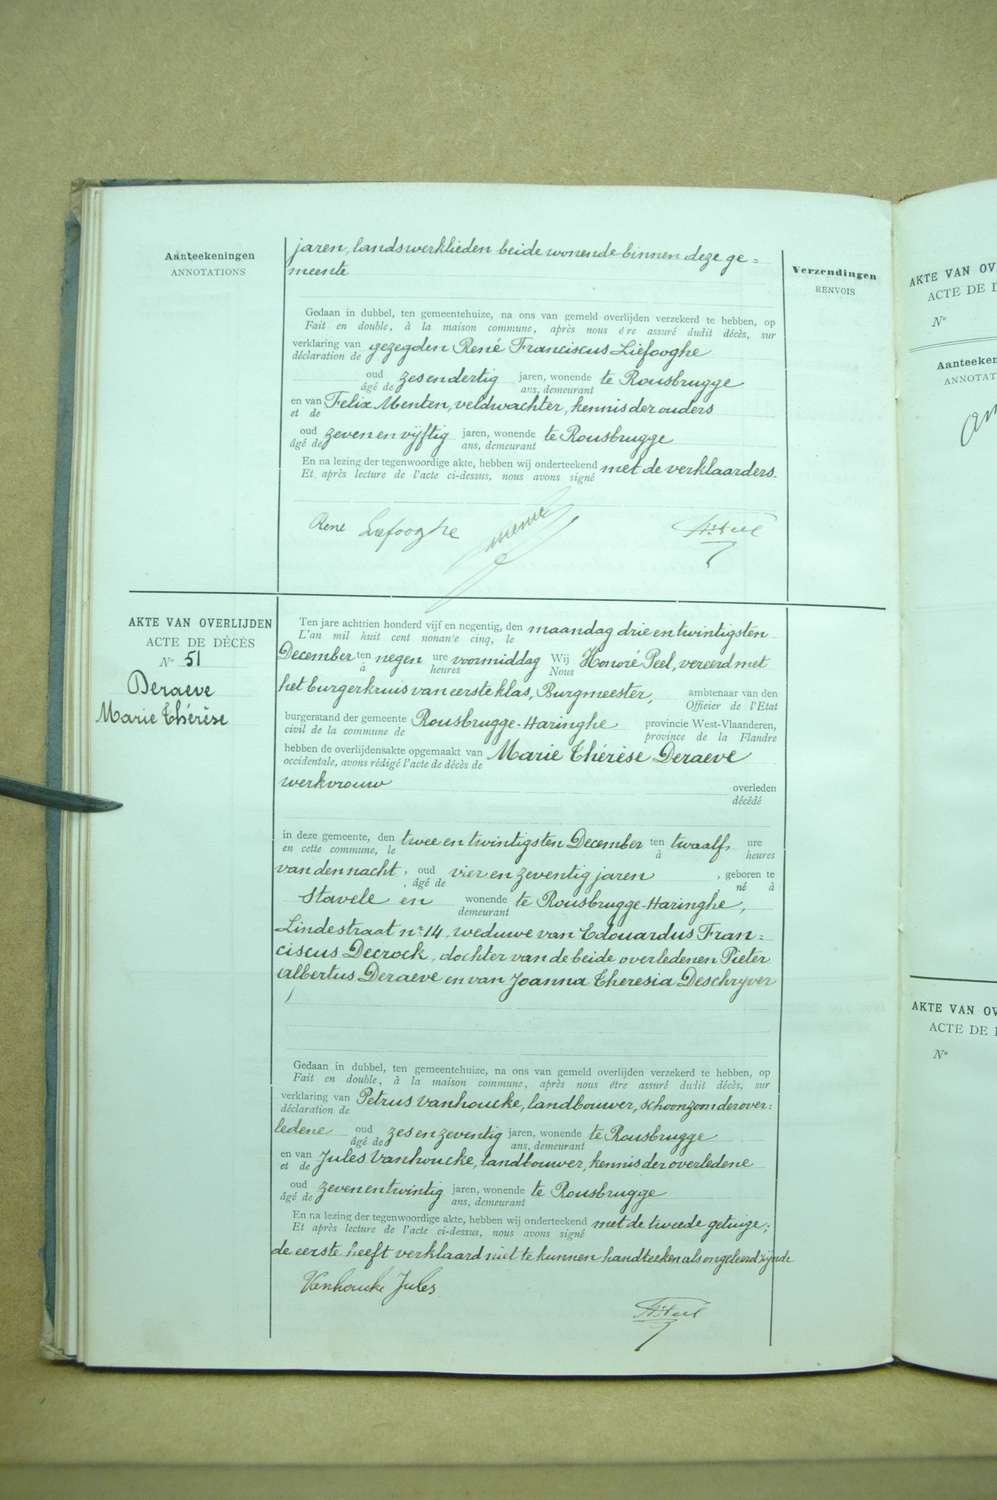 Aanteekeningen
ANNOTATIONS
jaren, landswerklieden beide wonende binnen deze ge=
meente
Verzendingen
RENVOIS
Gedaan in dubbel, ten gemeentehuize, na ons van gemeld overlijden verzekerd te hebben, op
Fait en double, à la maison commune, après nous être assuré dudit décès, sur
verklaring van gezegden René Franciscus Liefooghe
déclaration de
oud zesendertig jaren, wonende te Rousbrugge
âgé de ans, demeurant
en van Felix Menten, veldwachter, kennis der ouders
et de
oud zeven en vijftig jaren, wonende te Rousbrugge
âgé de ans, demeurant
En na lezing der tegenwoordige akte, hebben wij onderteekend met de verklaarders.
Et après lecture de l'acte ci-dessus, nous avons signé
René Liefooghe
AKTE VAN OVERLIJDEN
ACTE DE DÉCÈS
N° 51
Deraeve
Marie Thérèse
Ten jare achtien honderd vijf en negentig, den maandag drie en twintigsten
L'an mil huit cent nonante cinq, le
December ten negen ure voormiddag Wij Honoré Peel, vereerd met
à heures Nous
het burgerkruis van eerste klas, Burgmeester, ambtenaar van den
Officier de l'Etat
burgerstand der gemeente Rousbrugge-Haringhe provincie West-Vlaanderen,
civil de la commune de province de la Flandre
hebben de overlijdensakte opgemaakt van Marie Thérèse Deraeve
occidentale, avons rédigé l'acte de décès de
werkvrouw overleden
décédé
in deze gemeente, den twee en twintigsten December ten twaalf ure
en cette commune, le à heures
van den nacht, oud vier en zeventig jaren, geboren te
, âgé de né à
Stavele en wonende te Rousbrugge-Haringhe,
demeurant
Lindestraat n° 14, weduwe van Edouardus Fran=
ciscus Decrock, dochter van de beide overledenen Pieter
Albertus Deraeve en van Joanna Theresia Deschryver
Gedaan in dubbel, ten gemeentehuize, na ons van gemeld overlijden verzekerd te hebben, op
Fait en double, à la maison commune, après nous être assuré dudit décès, sur
verklaring van Petrus Vanhoucke, landbouwer, schoonzon der over=
déclaration de
ledene oud zes en zeventig jaren, wonende te Rousbrugge
âgé de ans, demeurant
en van Jules Vanhoucke, landbouwer, kennis der overledene
et de
oud zeven en twintig jaren, wonende te Rousbrugge
âgé de ans, demeurant
En na lezing der tegenwoordige akte, hebben wij onderteekend met de tweede getuige;
Et après lecture de l'acte ci-dessus, nous avons signé
de eerste heeft verklaard niet te kunnen handteeken als ongeleerd zijnde
Vanhoucke Jules
H. Peel
AKTE VAN OV
ACTE DE D
N°
Aanteeken
ANNOTAT
AKTE VAN OV
ACTE DE D
N°